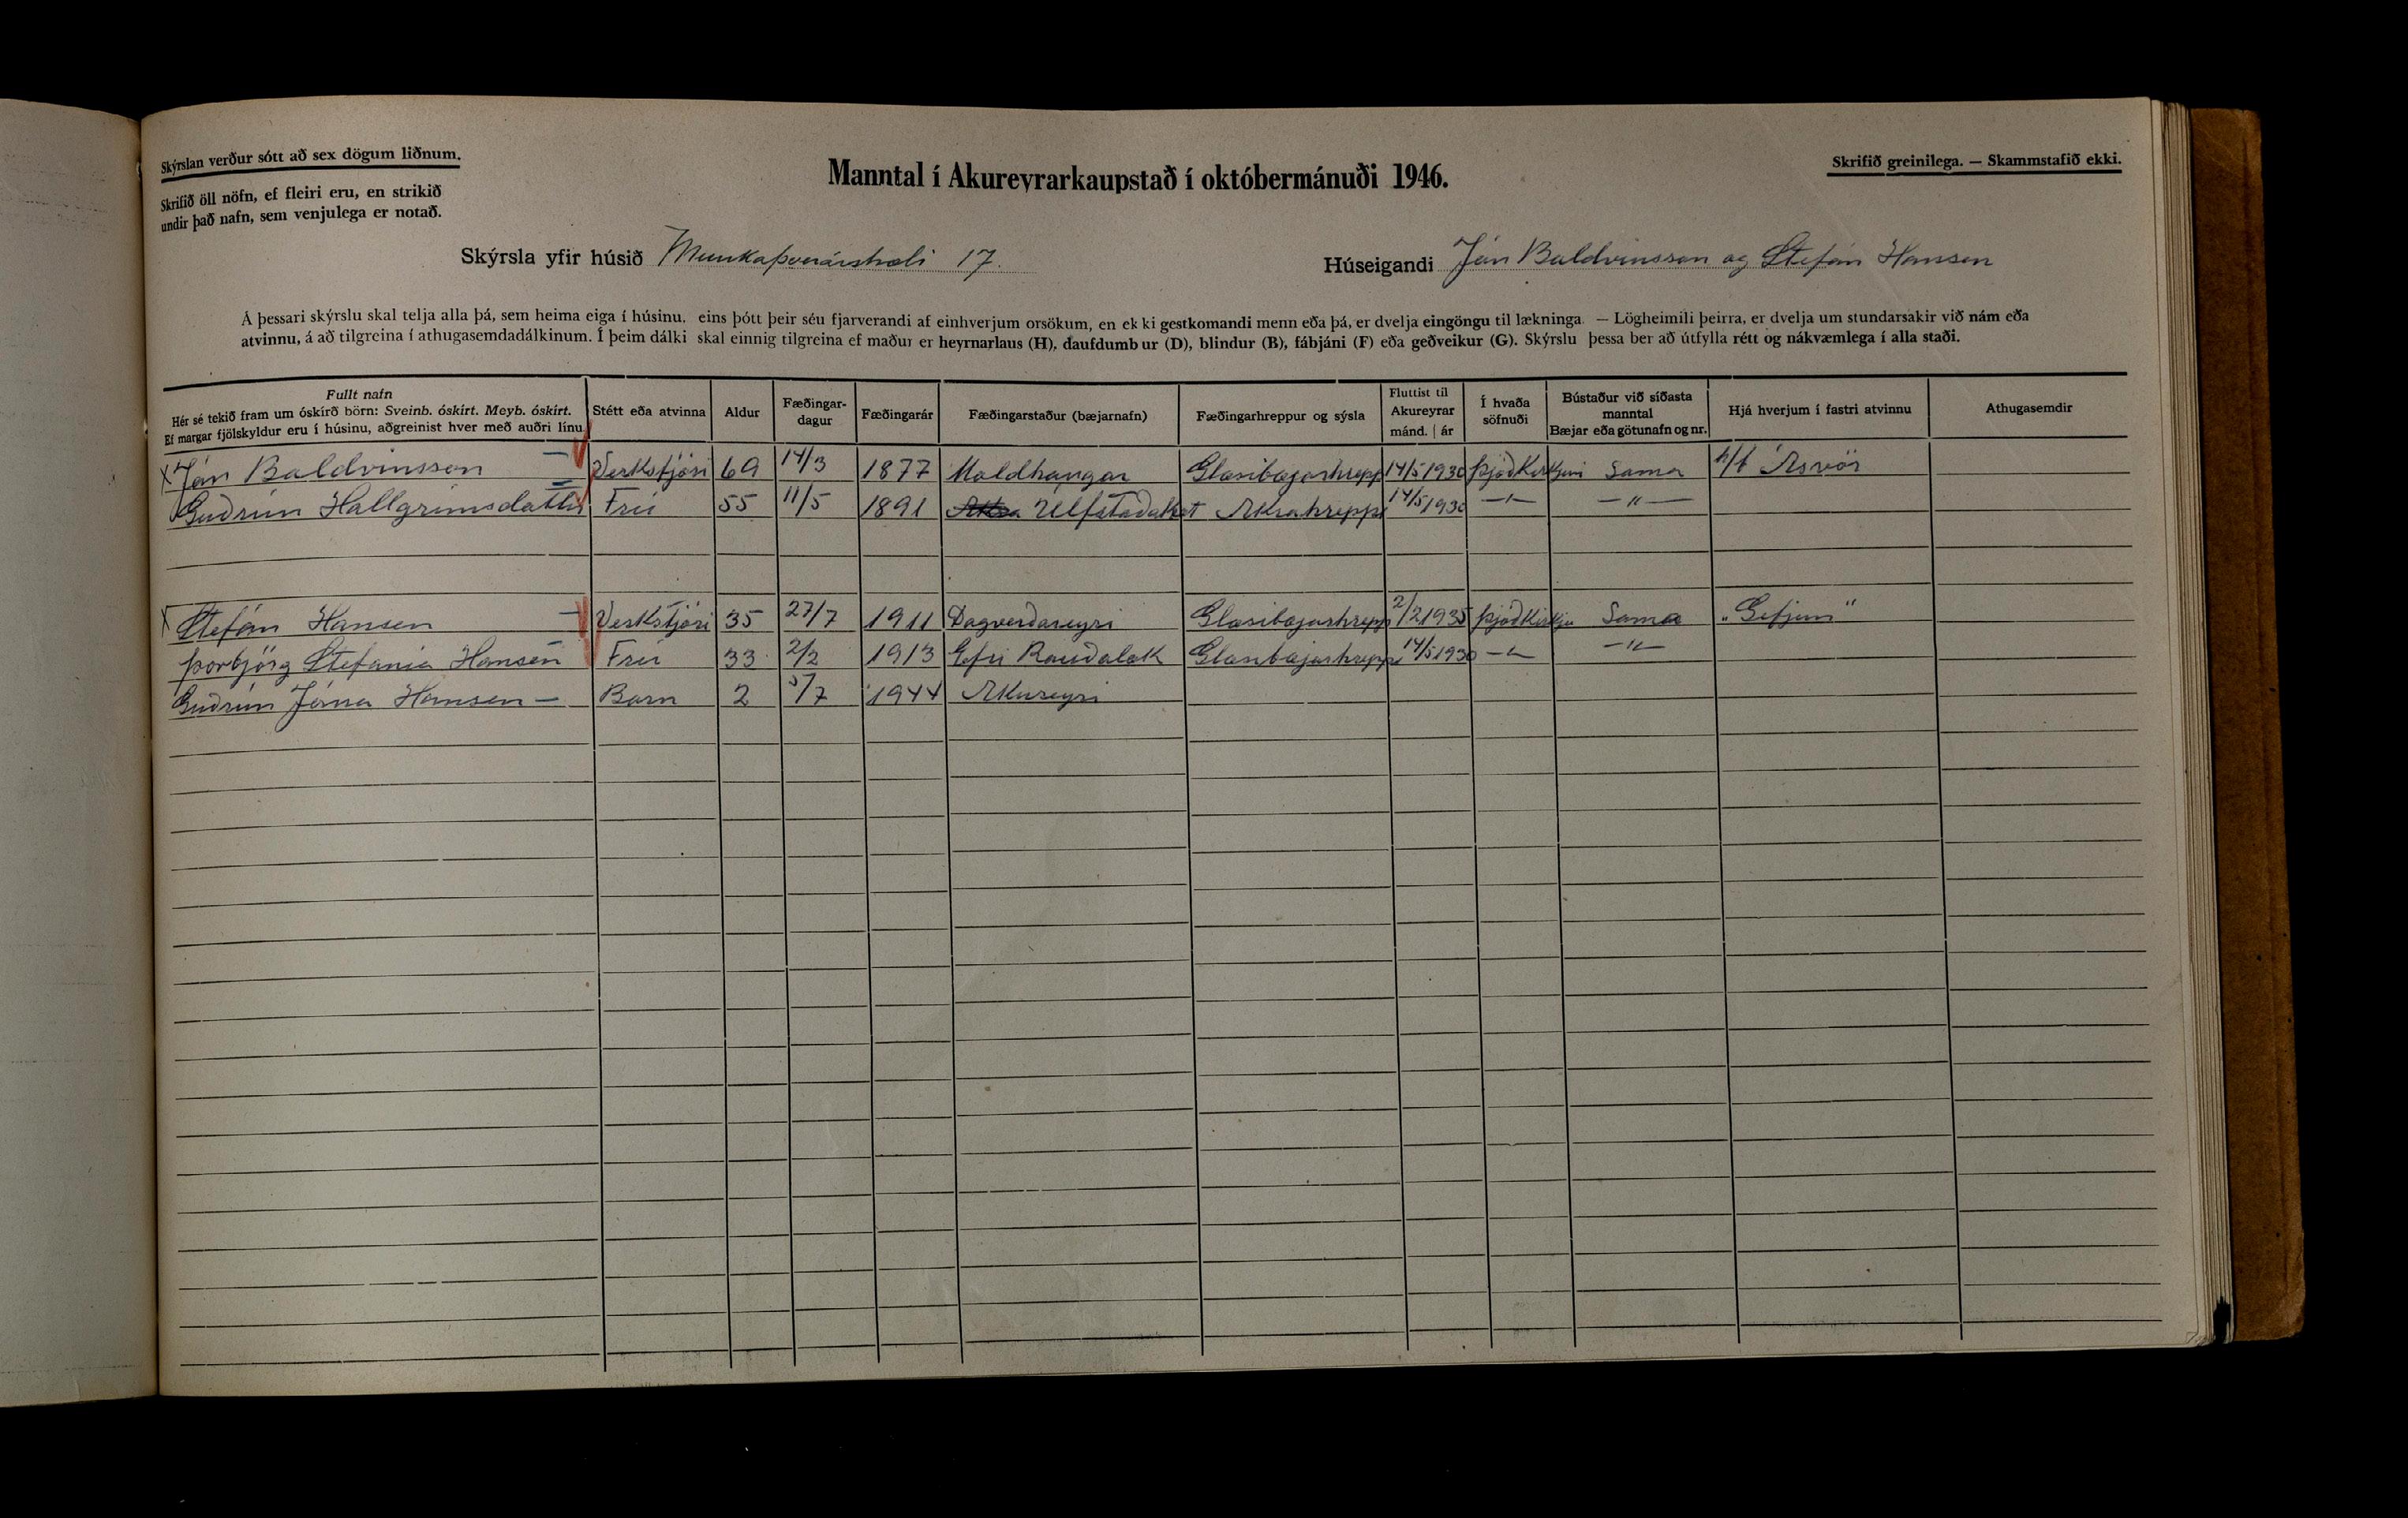 Skýrslan verður sótt að sex dögum liðnum.
Skrifið öll nöfn, ef fleiri eru, en strikið
undir það nafn, sem venjulega er notað.
Manntal í Akureyrarkaupstað í októbermánuði 1946.
Skrifið greinilega. — Skammstafið ekki.
Skýrsla yfir húsið Munkaþverárstræti 17.
Húseigandi Jón Baldvinsson og Stefán Hansen
Á þessari skýrslu skal telja alla þá, sem heima eiga í húsinu, eins þótt þeir séu fjarverandi af einhverjum orsökum, en ekki gestkomandi menn eða þá, er dvelja eingöngu til lækninga. — Lögheimili þeirra, er dvelja um stundarsakir við nám eða
atvinnu, á að tilgreina í athugasemdadálkinum. Í þeim dálki skal einnig tilgreina ef maður er heyrnarlaus (H), daufdumbur (D), blindur (B), fábjáni (F) eða geðveikur (G). Skýrslu þessa ber að útfylla rétt og nákvæmlega í alla staði.
Fullt nafn
Hér sé tekið fram um óskírð börn: Sveinb. óskírt. Meyb. óskírt.
Ef margar fjölskyldur eru í húsinu, aðgreinist hver með auðri línu.
Stétt eða atvinna
Aldur
Fæðingar-
dagur
Fæðingarár
Fæðingarstaður (bæjarnafn)
Fæðingarhreppur og sýsla
Fluttist til
Akureyrar
mánd. | ár
Í hvaða
söfnuði
Bústaður við síðasta
manntal
Bæjar eða götunafn og nr.
Hjá hverjum í fastri atvinnu
Athugasemdir
x Jón Baldvinsson — Verkstjóri 69 14/3 1877 Moldhaugar Glæsibæjarhrepp 14/5 1930 Þjóðkirkjuni Sama h/f Ásvör
Guðrún Hallgrímsdóttir Frú 55 11/5 1891 Ulfstaðakot Akrahreppi 14/5 1930 —"— —"—
x Stefán Hansen — Verkstjóri 35 27/7 1911 Dagverðareyri Glæsibæjarhrepp 2/2 1935 Þjóðkirkju Sama „Gefjun"
Þorbjörg Stefanía Hansen Frú 33 2/2 1913 Efri Rauðalæk Glæsibæjarhreppi 14/5 1930 —"— —"—
Guðrún Jóna Hansen — Barn 2 5/7 1944 Akureyri